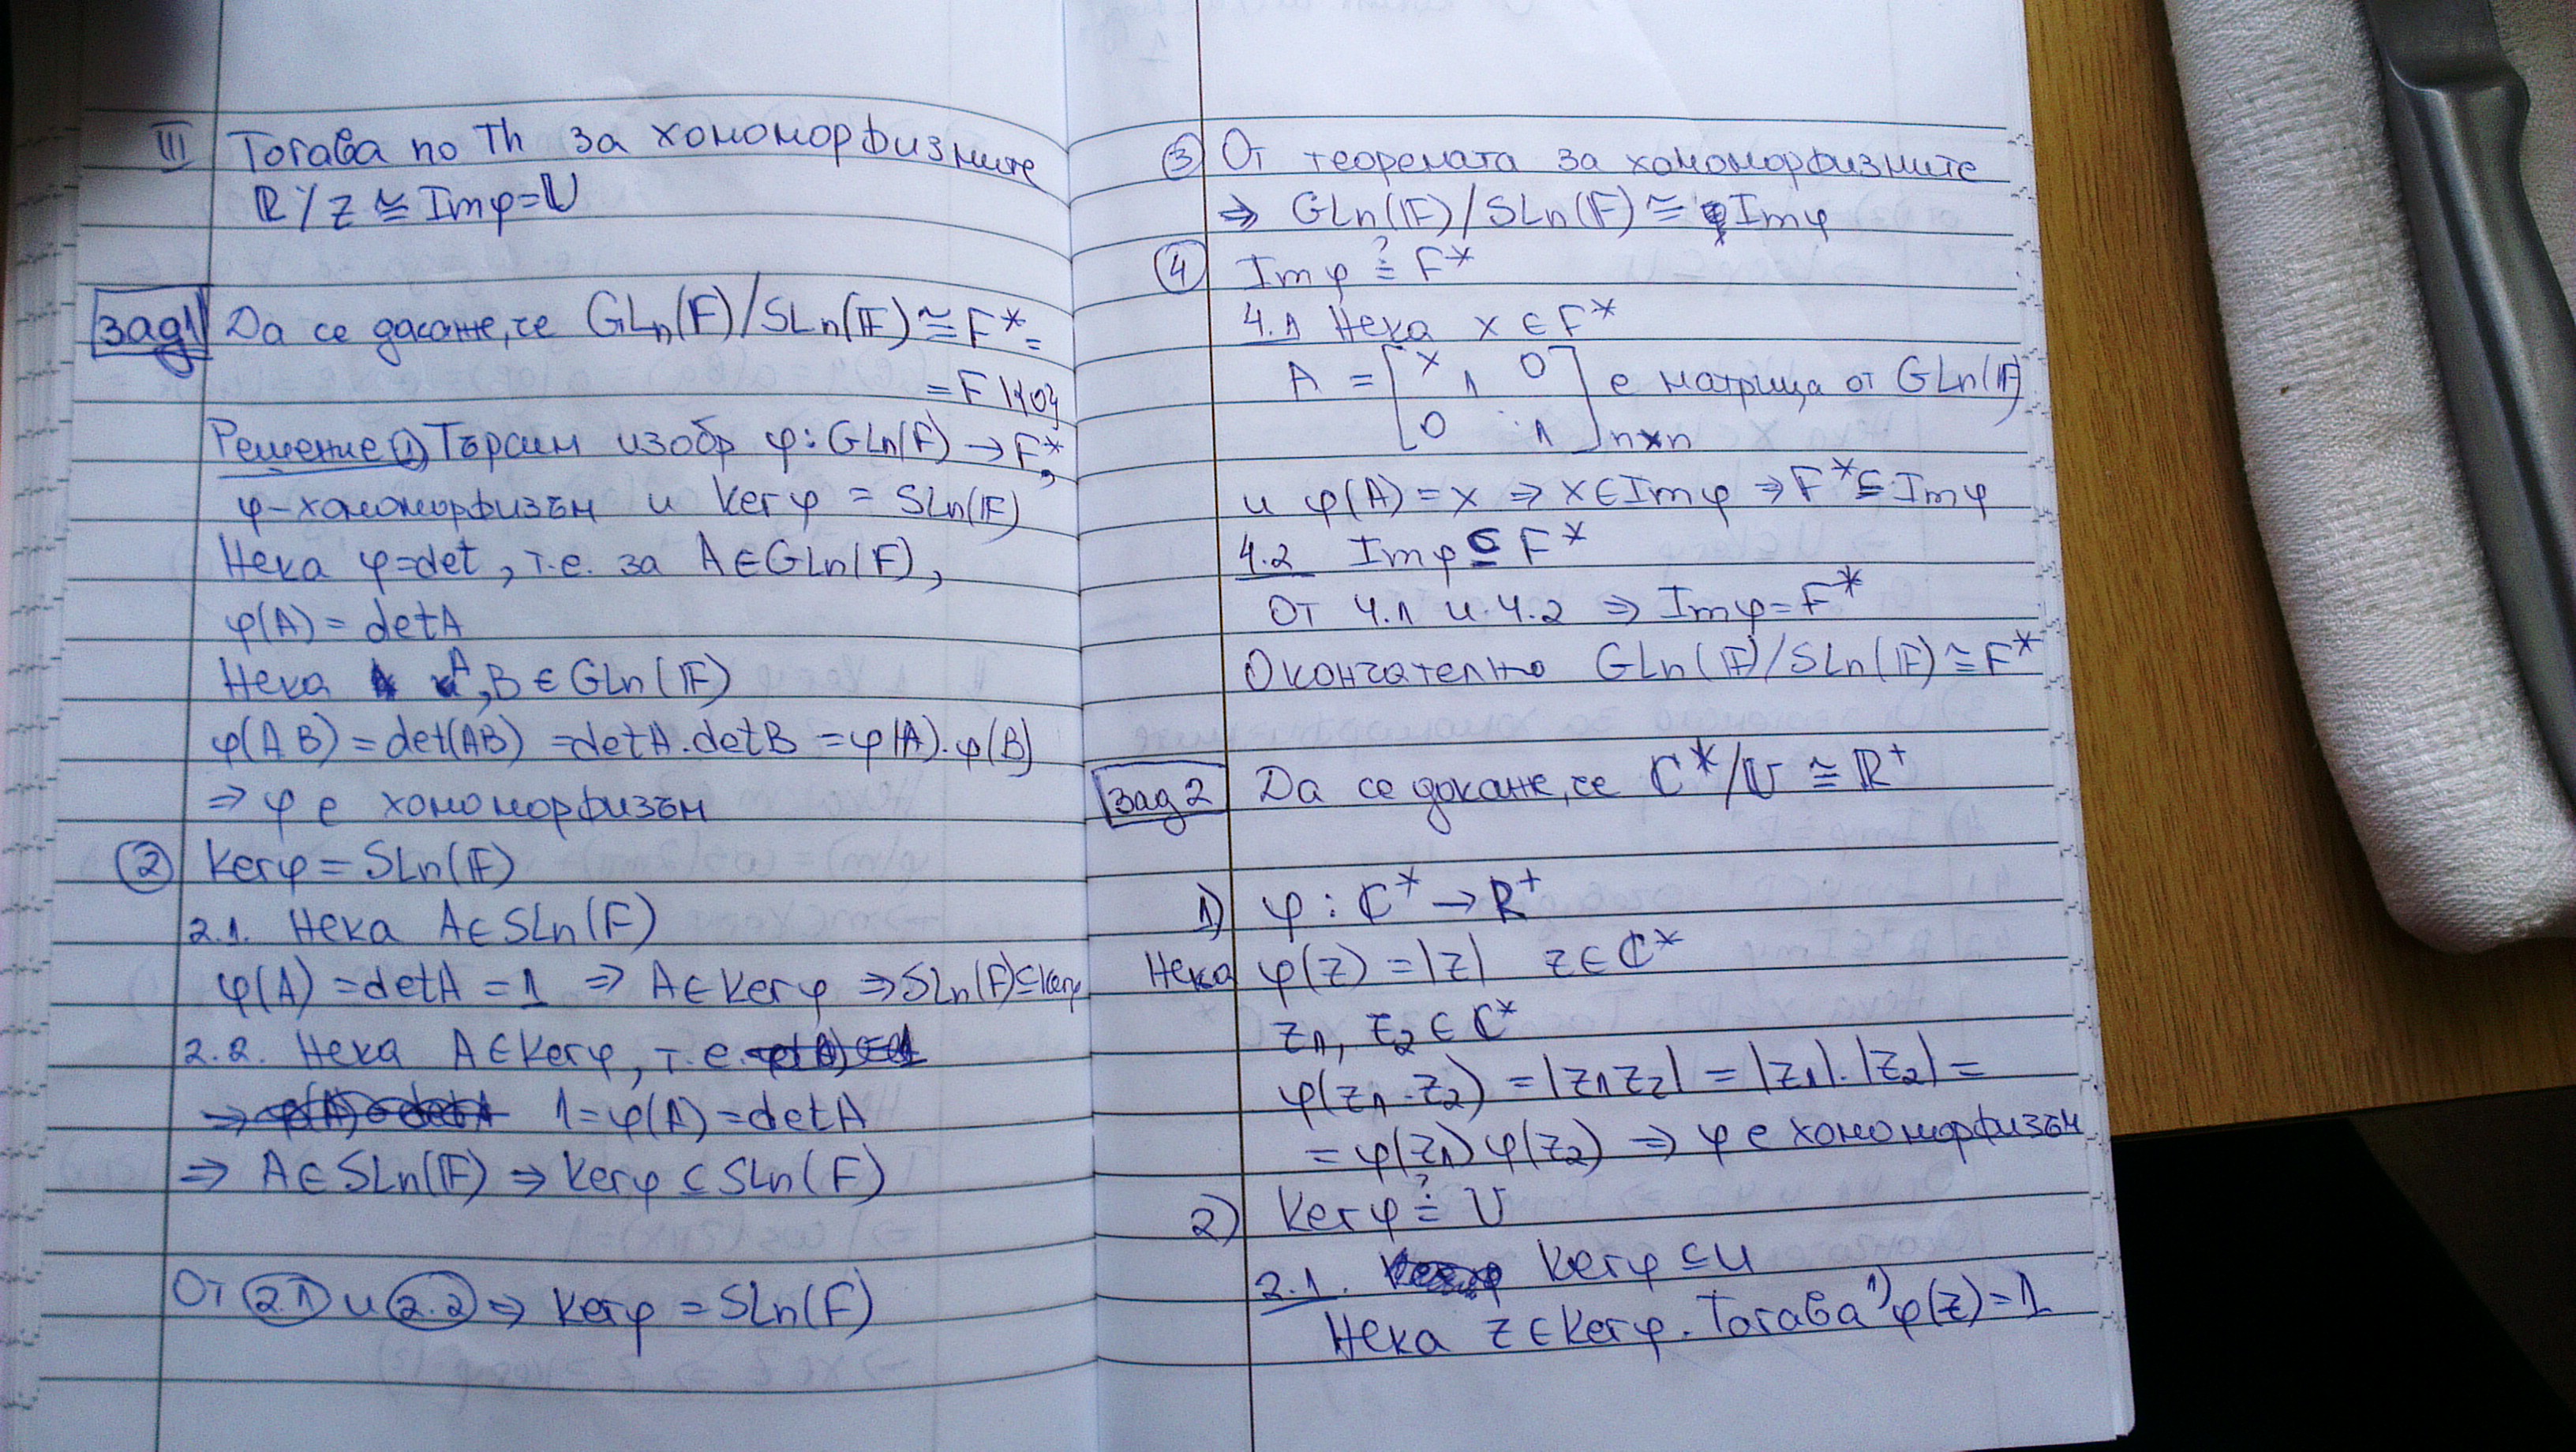 III Тогава по Th за хомоморфизмите
ℝ/Z ≅ Imφ=U
зад1 Да се докаже, че GLn(F)/SLn(F) ≅ F* =
= F \ {0}
Решение ① Търсим изобр φ: GLn(F) → F*,
φ-хомоморфизъм и Kerφ = SLn(F)
Нека φ=det, т.е. за A∈GLn(F),
φ(A) = detA
Нека A,B ∈ GLn(F)
φ(AB) = det(AB) = detA.detB = φ(A).φ(B)
⇒ φ е хомоморфизъм
② Kerφ = SLn(F)
2.1. Нека A∈SLn(F)
φ(A) = detA = 1 ⇒ A∈Kerφ ⇒ SLn(F)⊆Kerφ
2.2. Нека A∈Kerφ, т.е.
1=φ(A)=detA
⇒ A∈SLn(F) ⇒ Kerφ ⊆ SLn(F)
От 2.1 и 2.2 ⇒ Kerφ = SLn(F)
③ От теоремата за хомоморфизмите
⇒ GLn(F)/SLn(F) ≅ Imφ
④ Imφ ≟ F*
4.1 Нека x ∈ F*
A = [x 1 0
0 ⋱ 1]n×n е матрица от GLn(F)
и φ(A) = x ⇒ x∈Imφ ⇒ F*⊆Imφ
4.2 Imφ ⊆ F*
От 4.1 и 4.2 ⇒ Imφ=F*
Окончателно GLn(F)/SLn(F) ≅ F*
зад 2 Да се докаже, че ℂ*/U ≅ ℝ⁺
1) φ: ℂ* → R⁺
Нека φ(z) = |z| z∈ℂ*
z1, z2 ∈ ℂ*
φ(z1.z2) = |z1z2| = |z1|.|z2| =
= φ(z1)φ(z2) ⇒ φ е хомоморфизъм
2) Kerφ ≟ U
2.1. Kerφ ⊆ U
Нека z∈Kerφ. Тогава 1) φ(z)=1